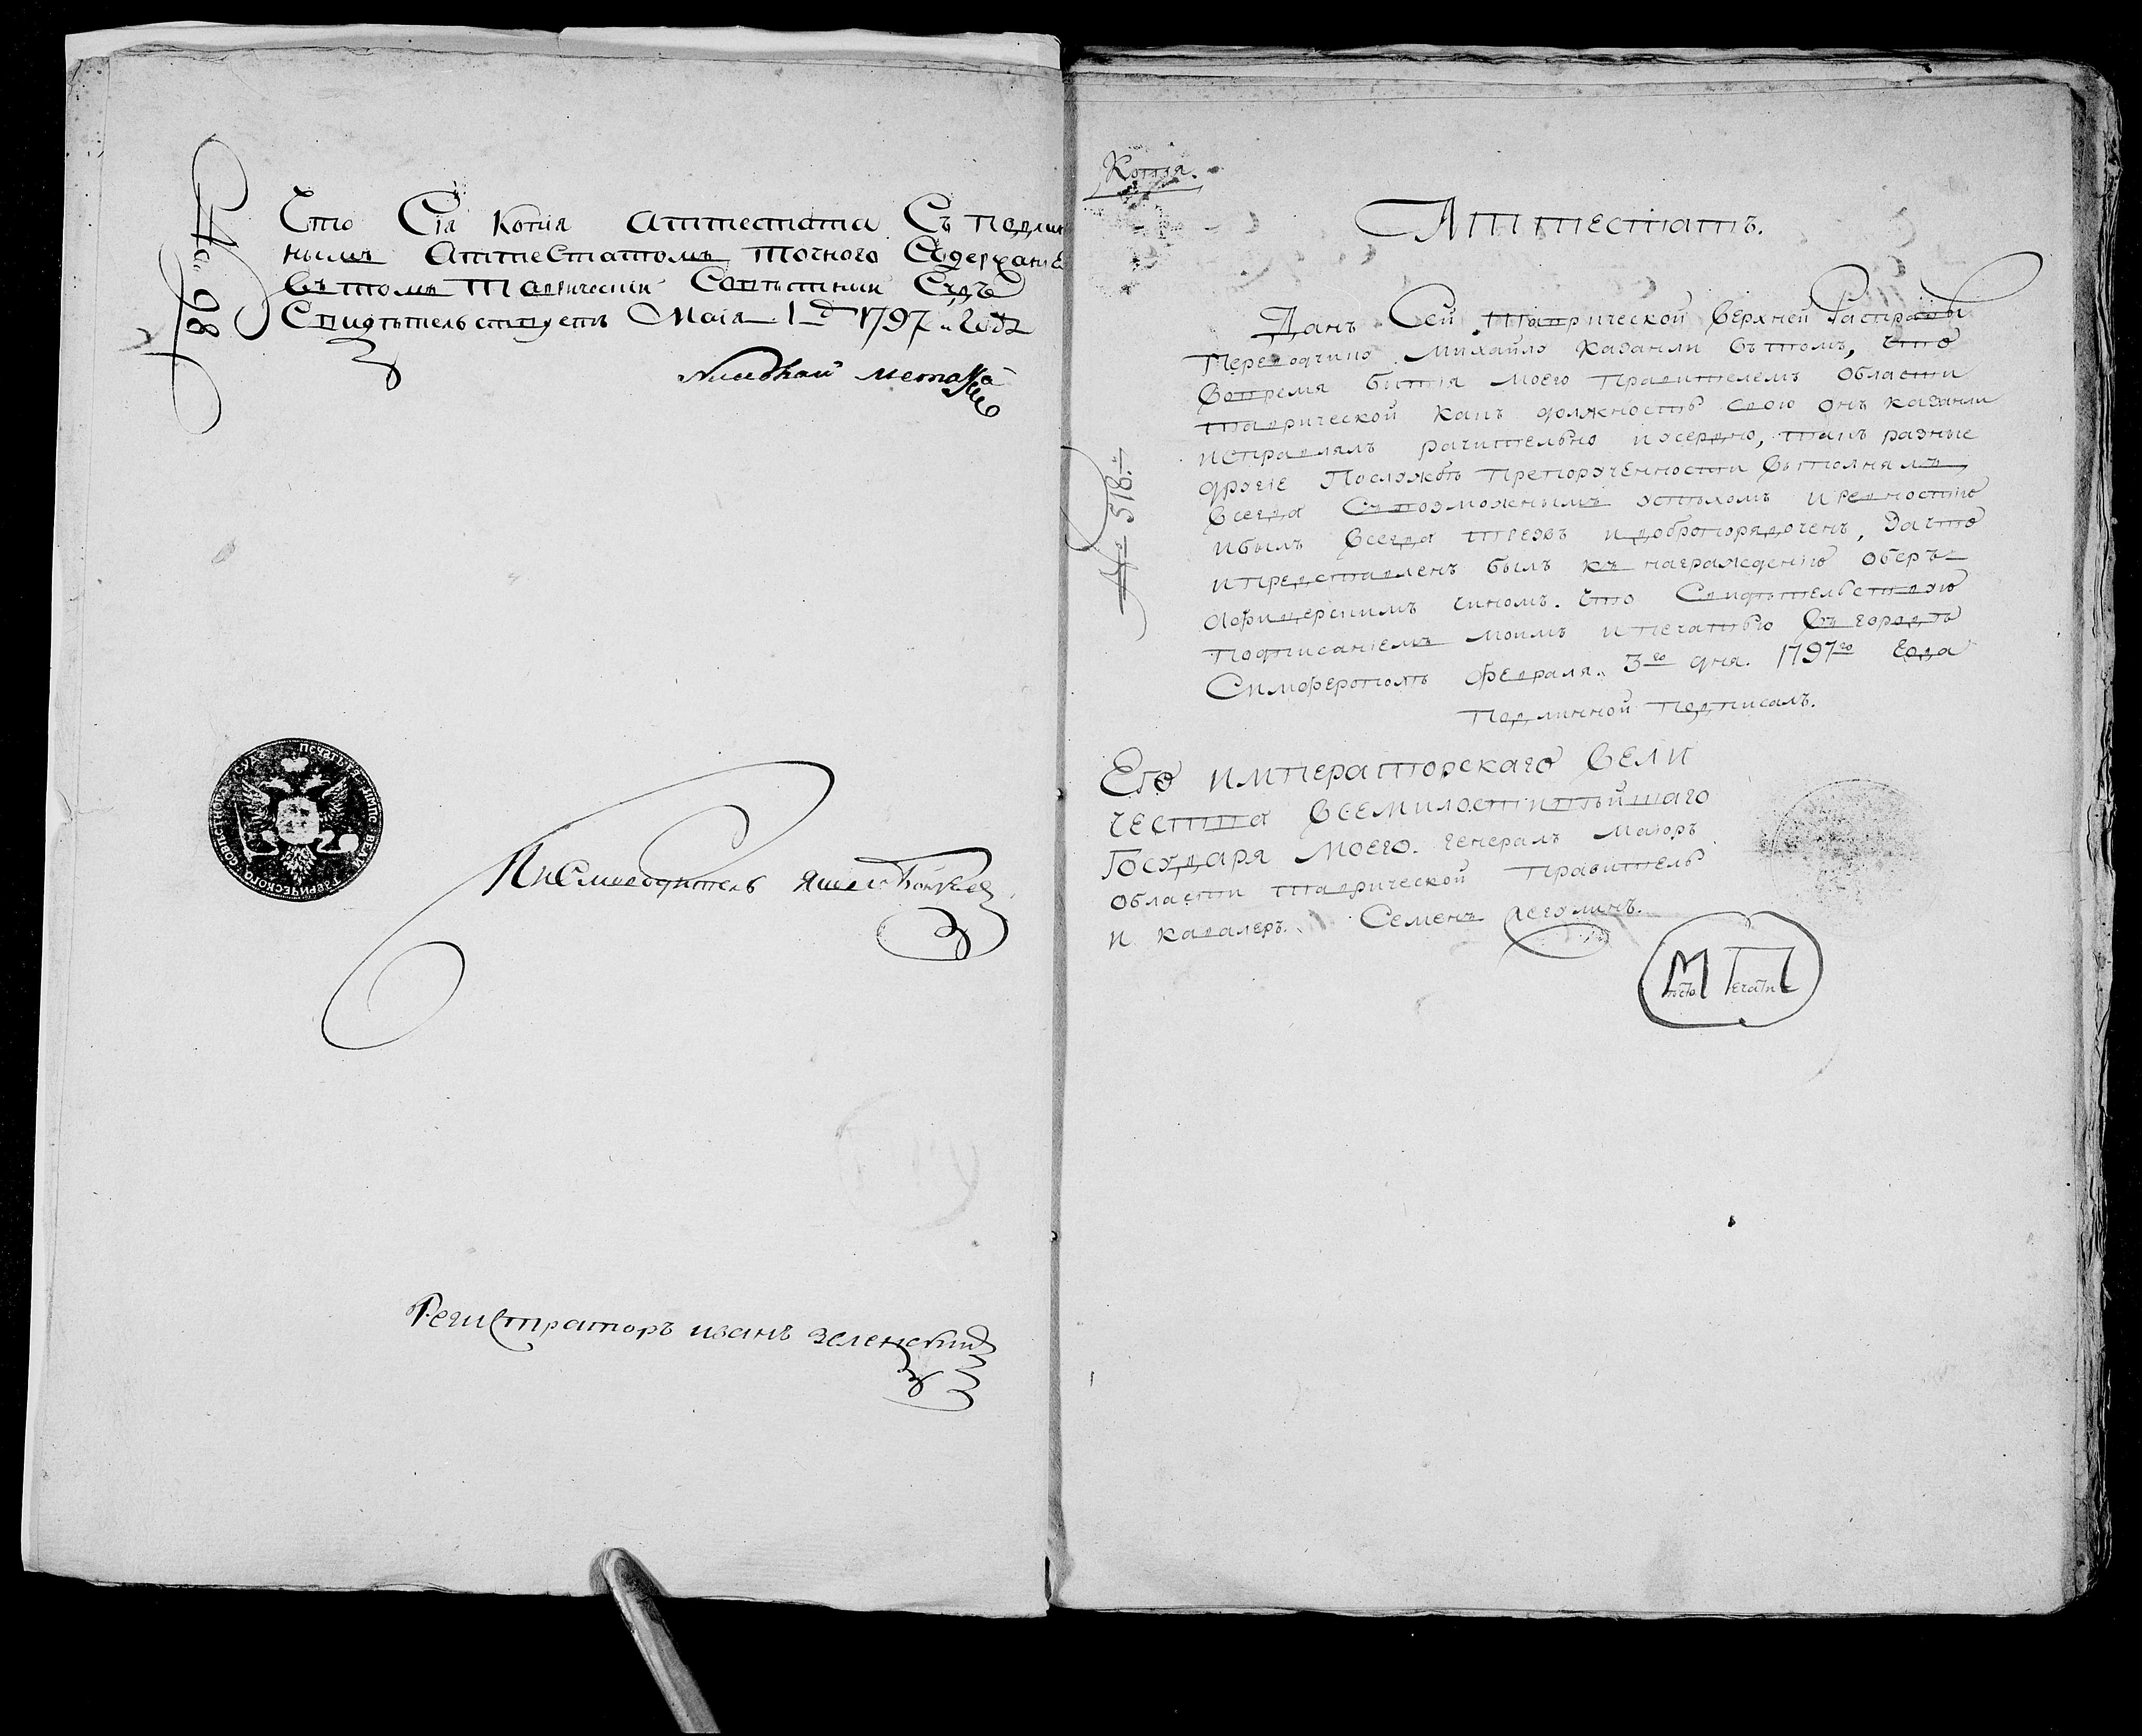 № 98
Что Сія Копія аттестата Съ подлин
нымъ аттестатомъ точного Содержаніе
въ томъ Таврический Совѣстный Судъ
Свидѣтельствуетъ Маія 1 д 1797 Года
ПЕЧАТЬ ЕЯ ИМПЕ: ВЕЛИ: ТАВРИЧЕСКОГО СОВѢСТНОГО СУДА
Регистраторъ иванъ зеленский
Копія.
Аттестатъ.
№ 518
Данъ Сей Таврической Верхней Расправы
Переводчику Михайлу Казанли въ томъ, что
вовремя бытія моего Правителемъ Области
таврической какъ должность свою онъ казанли
исправлялъ рачительно иусердно, такъ разные
другіе Послужбѣ препорученности выполнялъ
всегда Свозможнымъ успѣхомъ иревностію
ибылъ всегда трезвъ идобропорядоченъ, зачто
ипредставленъ былъ къ награжденію оберъ-
афицерскимъ чиномъ. что Свидѣтельствую
подписаніемъ моимъ ипечатью въ городѣ
Симферополѣ февраля 3го дня. 1797го года
Подлинной Подписалъ.
Его императорскаго вели
чества всемилостивѣйшаго
Государя моего. генералъ маіоръ
области таврической правитель
и кавалеръ. Семенъ Жегулинъ.
Мѣсто Печати